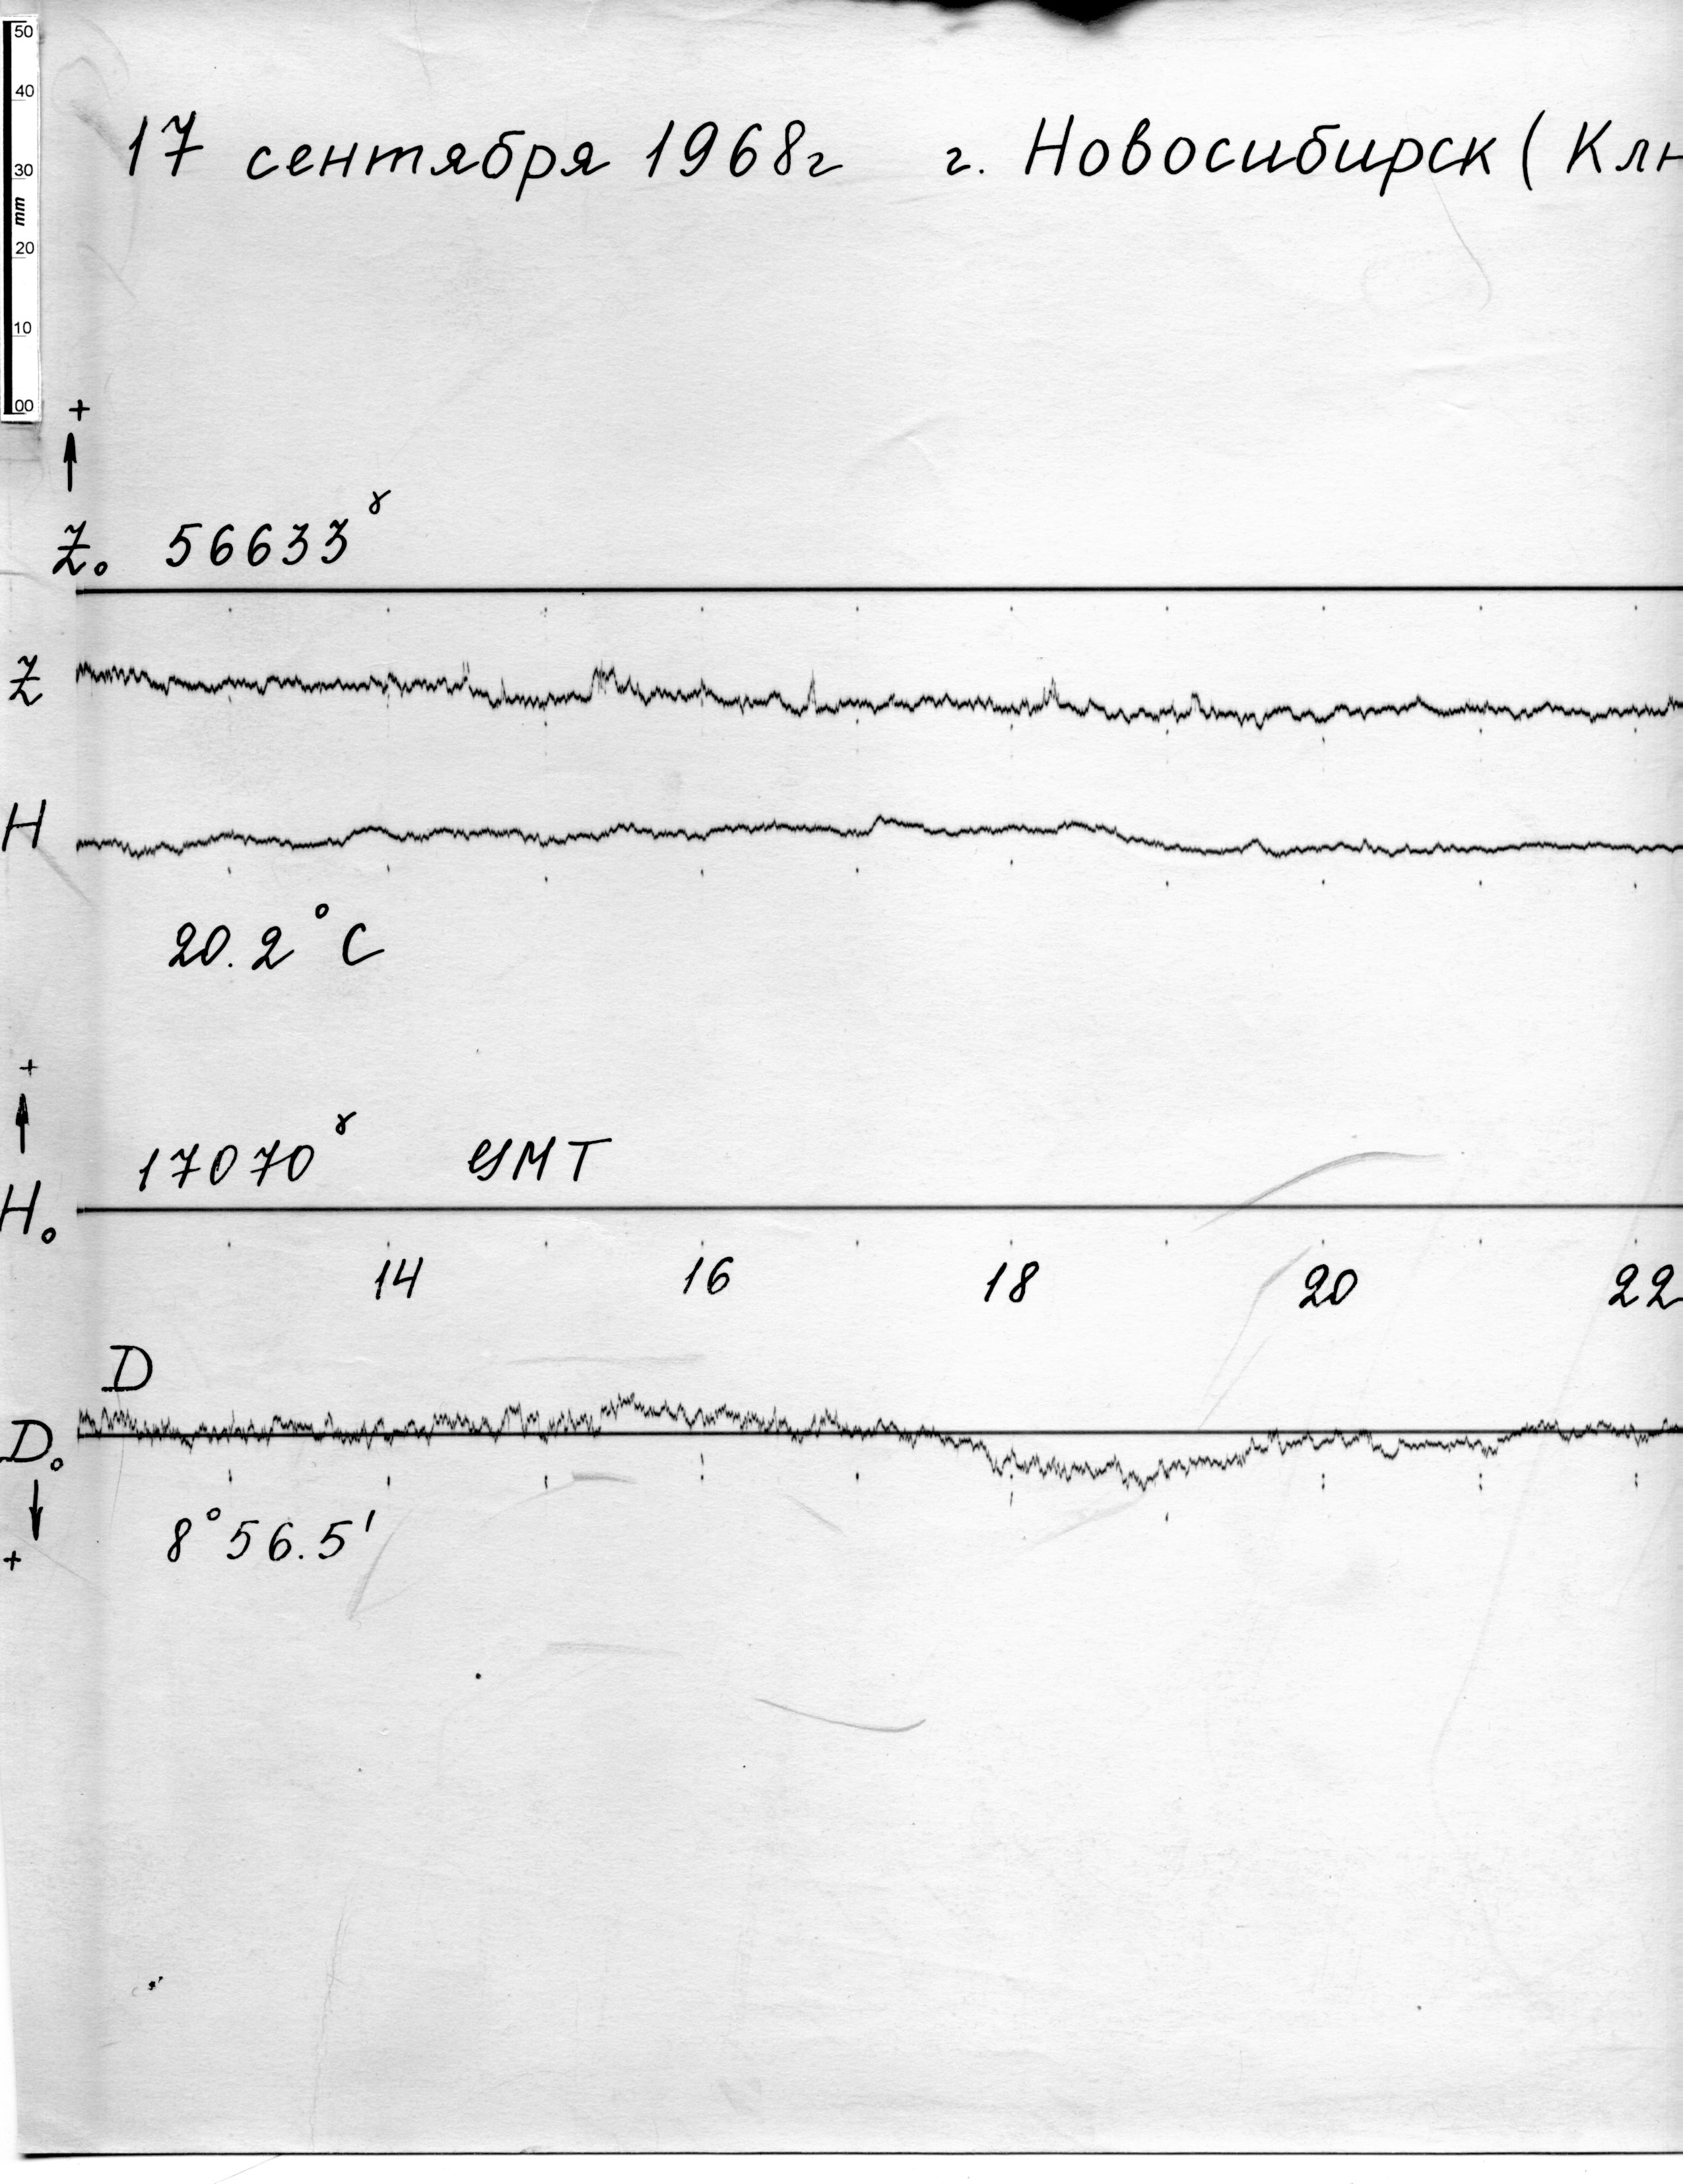 50
40
30
mm
20
10
00
17 сентября 1968г г. Новосибирск (Клю
+
Z₀ 56633ˠ
Z
H
20.2°C
+
17070ˠ УМТ
H₀
14 16 18 20 22
D
D₀
8°56.5'
+